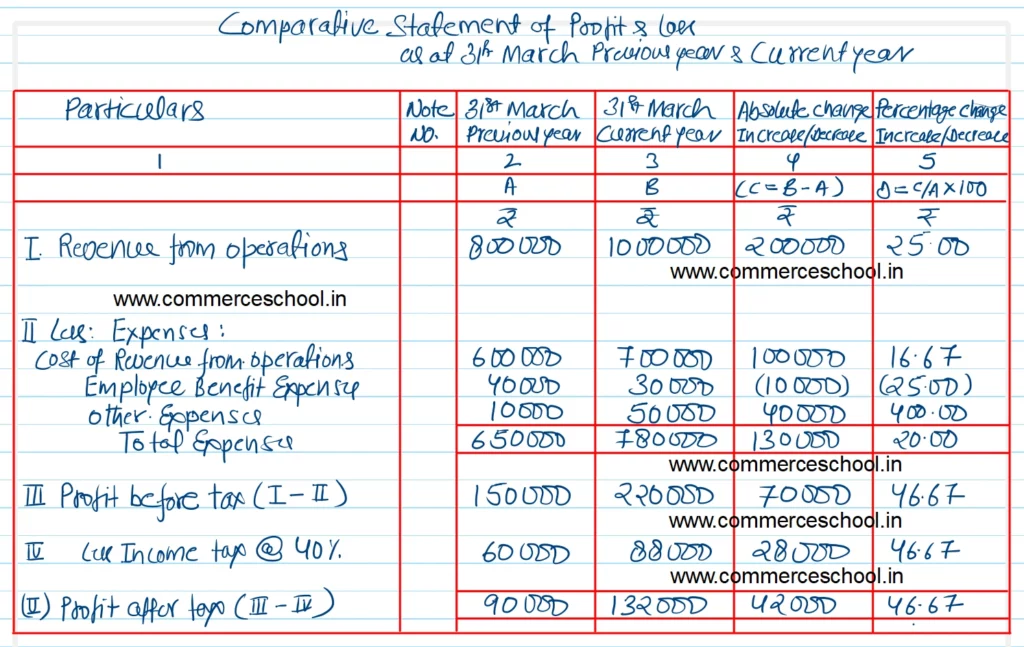 Comparative Statement of Profit & Loss
as at 31st March Previous year & Current year
Particulars Note No. 31st March Previous year 31st March Current year Absolute change Increase/Decrease Percentage change Increase/Decrease
1 2 3 4 5
A B (C = B - A) D = C/A × 100
₹ ₹ ₹ ₹
I. Revenue from operations 800000 1000000 200000 25.00
www.commerceschool.in
www.commerceschool.in
II Less: Expenses:
Cost of Revenue from operations 600000 700000 100000 16.67
Employee Benefit Expenses 40000 30000 (10000) (25.00)
other Expenses 10000 50000 40000 400.00
Total Expenses 650000 780000 130000 20.00
www.commerceschool.in
III Profit before tax (I - II) 150000 220000 70000 46.67
www.commerceschool.in
IV Less Income tax @ 40% 60000 88000 28000 46.67
www.commerceschool.in
(II) Profit after tax (III - IV) 90000 132000 42000 46.67